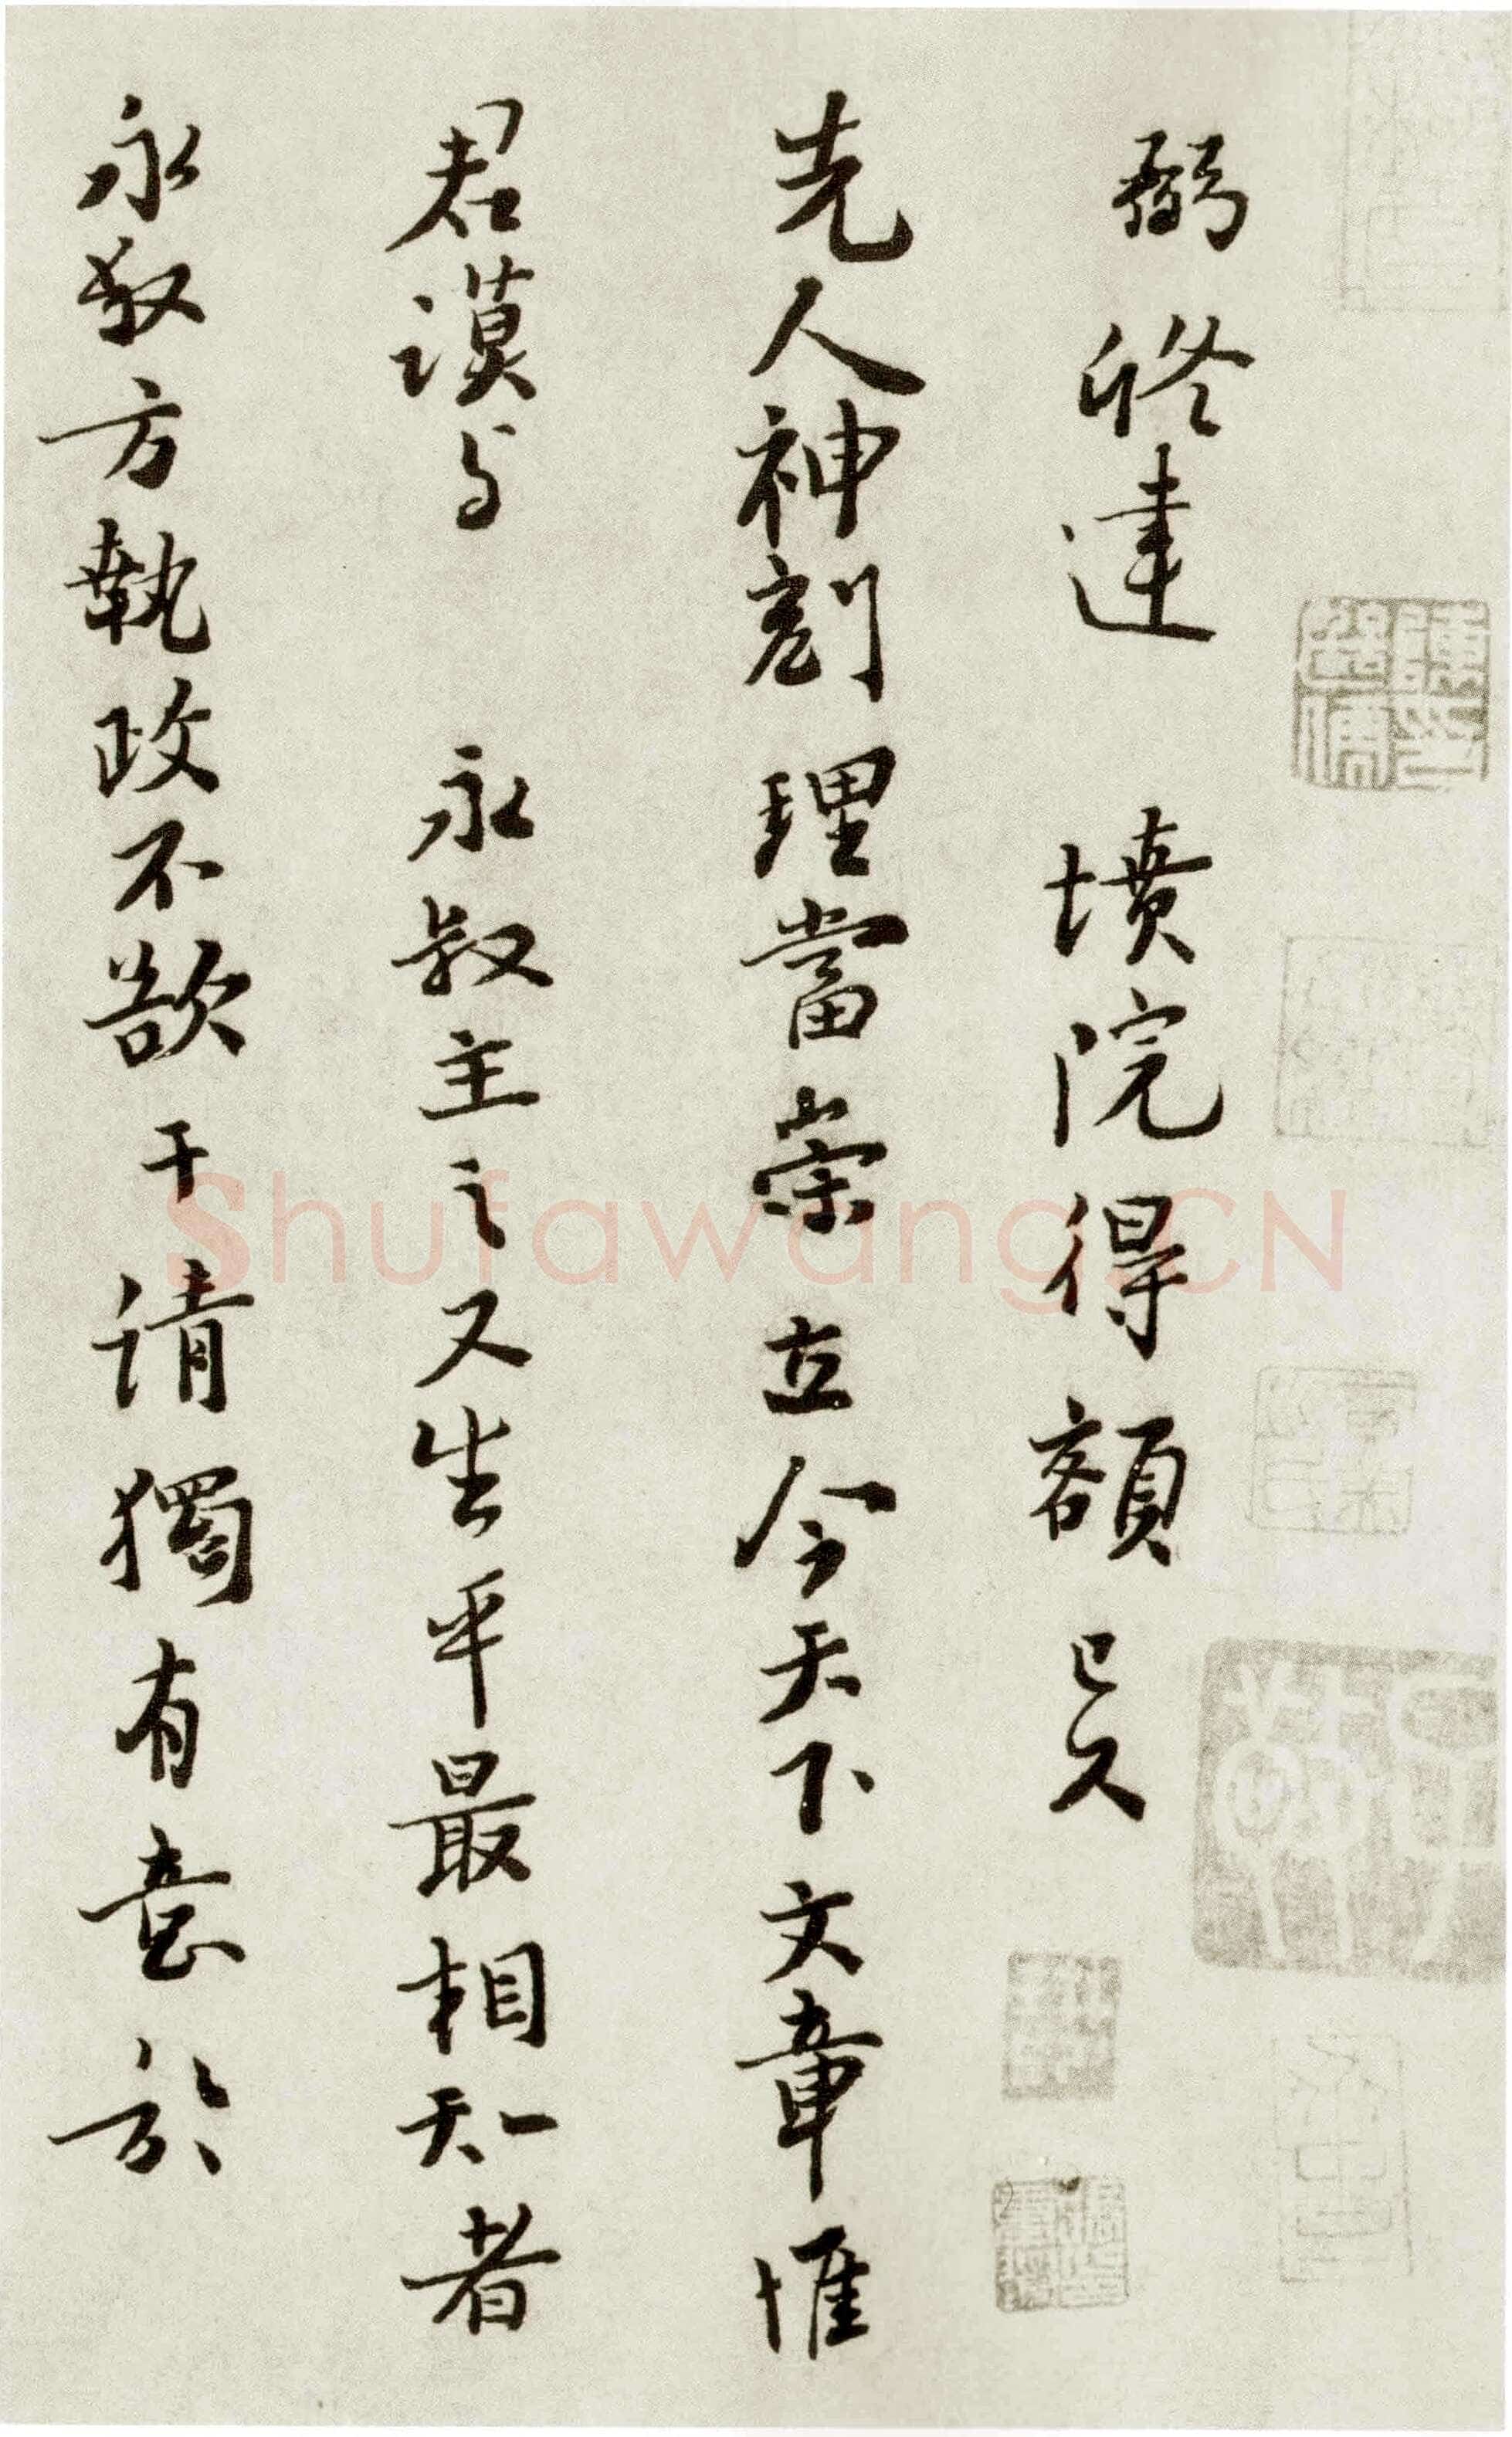 弼修建墳院得額已久
先人神刻理當崇立今天下文章惟
君謨与永叔主之又生平最相知者
永叔方執政不欲干請獨有意於
Shufawang.CN